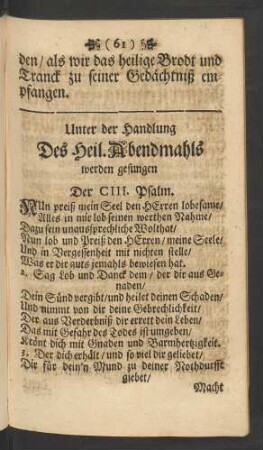 ( 61 )
den/ als wir das heilige Brodt und
Tranck zu seiner Gedächtniß em
pfangen.
Unter der Handlung
Des Heil. Abendmahls
werden gesungen
Der CIII. Psalm.
NUn preiß mein Seel den HErren lobesame/
Alles in mir lob seinen werthen Nahme/
Dazu sein unaussprechliche Wolthat/
Nun lob und Preiß den HErren/ meine Seele/
Und in Vergessenheit mit nichten stelle/
Was er dir guts jemahls bewiesen hat.
2. Sag Lob und Danck dem/ der dir aus Ge-
naden/
Dein Sünd vergibt/ und heilet deinen Schaden/
Und nimmt von dir deine Gebrechlichkeit/
Der aus Verderbniß dir errett dein Leben/
Das mit Gefahr des Todes ist umgeben/
Krönt dich mit Gnaden und Barmhertzigkeit.
3. Der dich erhält/ und so viel dir geliebet/
Dir für dein'n Mund zu deiner Nothdurfft
giebet/
Macht